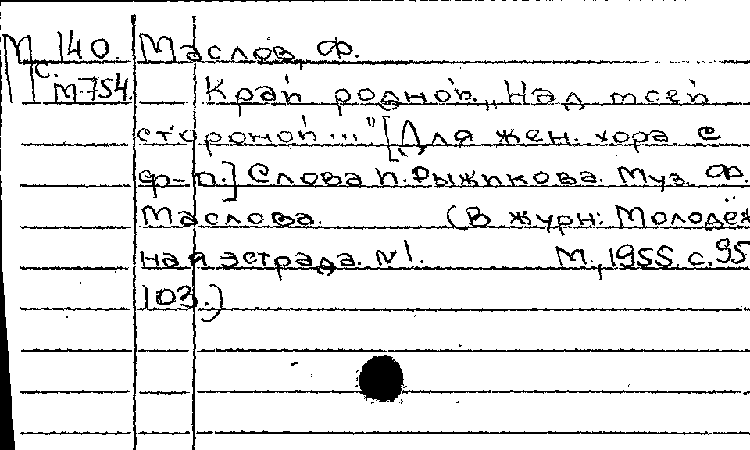 М 140. Маслов, Ф.
С. М-754 Край родной. „Над тсей
стороной..." [Для жен. хора с
ф-п.] Слова П. Рыжикова. Муз. Ф.
Маслова. (В журн: Молодёж
ная эстрада. N1. М., 1955. с. 95
103.)